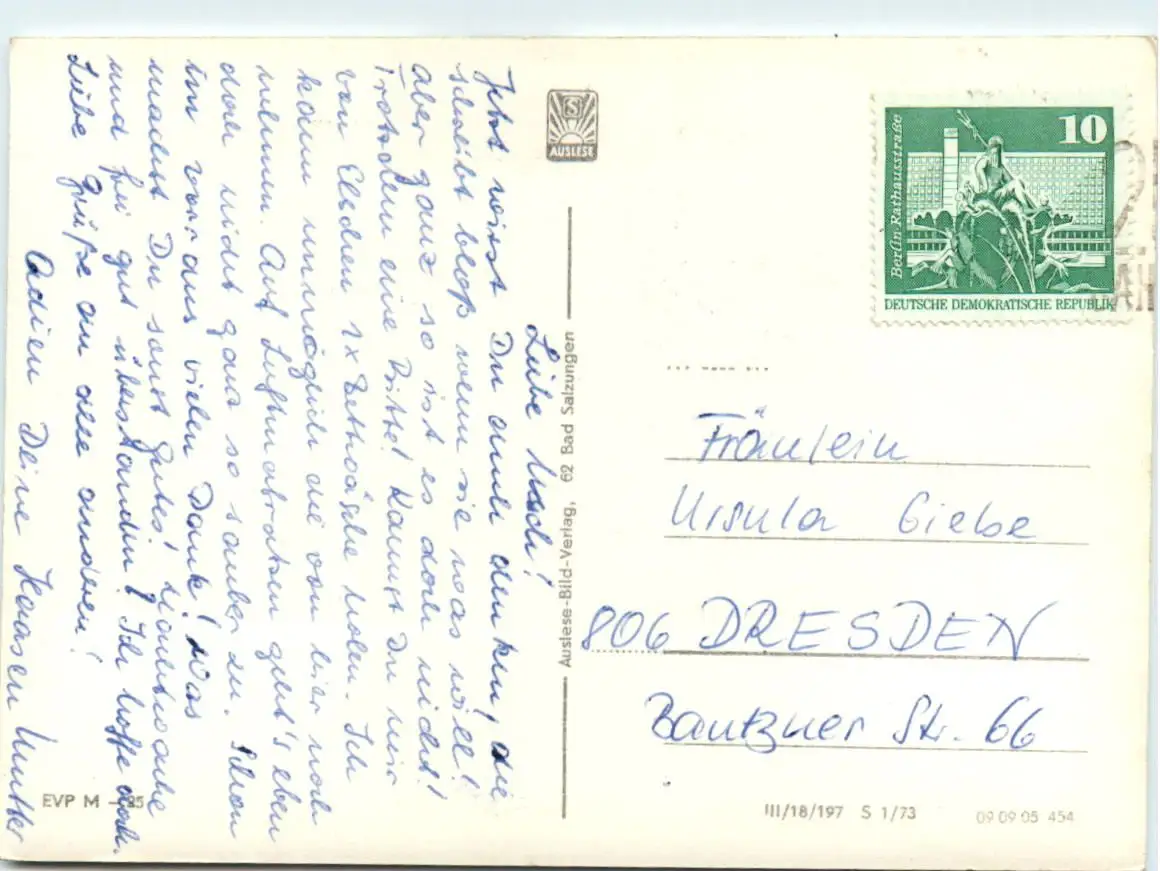 Liebe Usch!
Jetzt wirst Du auch denken, die
schreibt bloß wenn sie was will!
aber ganz so ist es doch nicht!
Trotzdem eine Bitte! Kannst Du mir
von Elbchen 1x Bettwäsche holen. Ich
kann unmöglich die von hier noch
nehmen. Auf Luftmatratzen geht's eben
doch nicht ganz so sauber zu. Schon
im voraus vielen Dank! Was
machst Du sonst Gutes!
und hei gut überstanden? Ich hoffe doch.
Liebe Grüße an alle anderen!
Adieu Deine
S
AUSLESE
Auslese-Bild-Verlag, 62 Bad Salzungen
EVP M –,25
10
Berlin-Rathausstraße
DEUTSCHE DEMOKRATISCHE REPUBLIK
Fräulein
Ursula Giebe
806 DRESDEN
Bautzner Str. 66
III/18/197 S 1/73
09 09 05 454